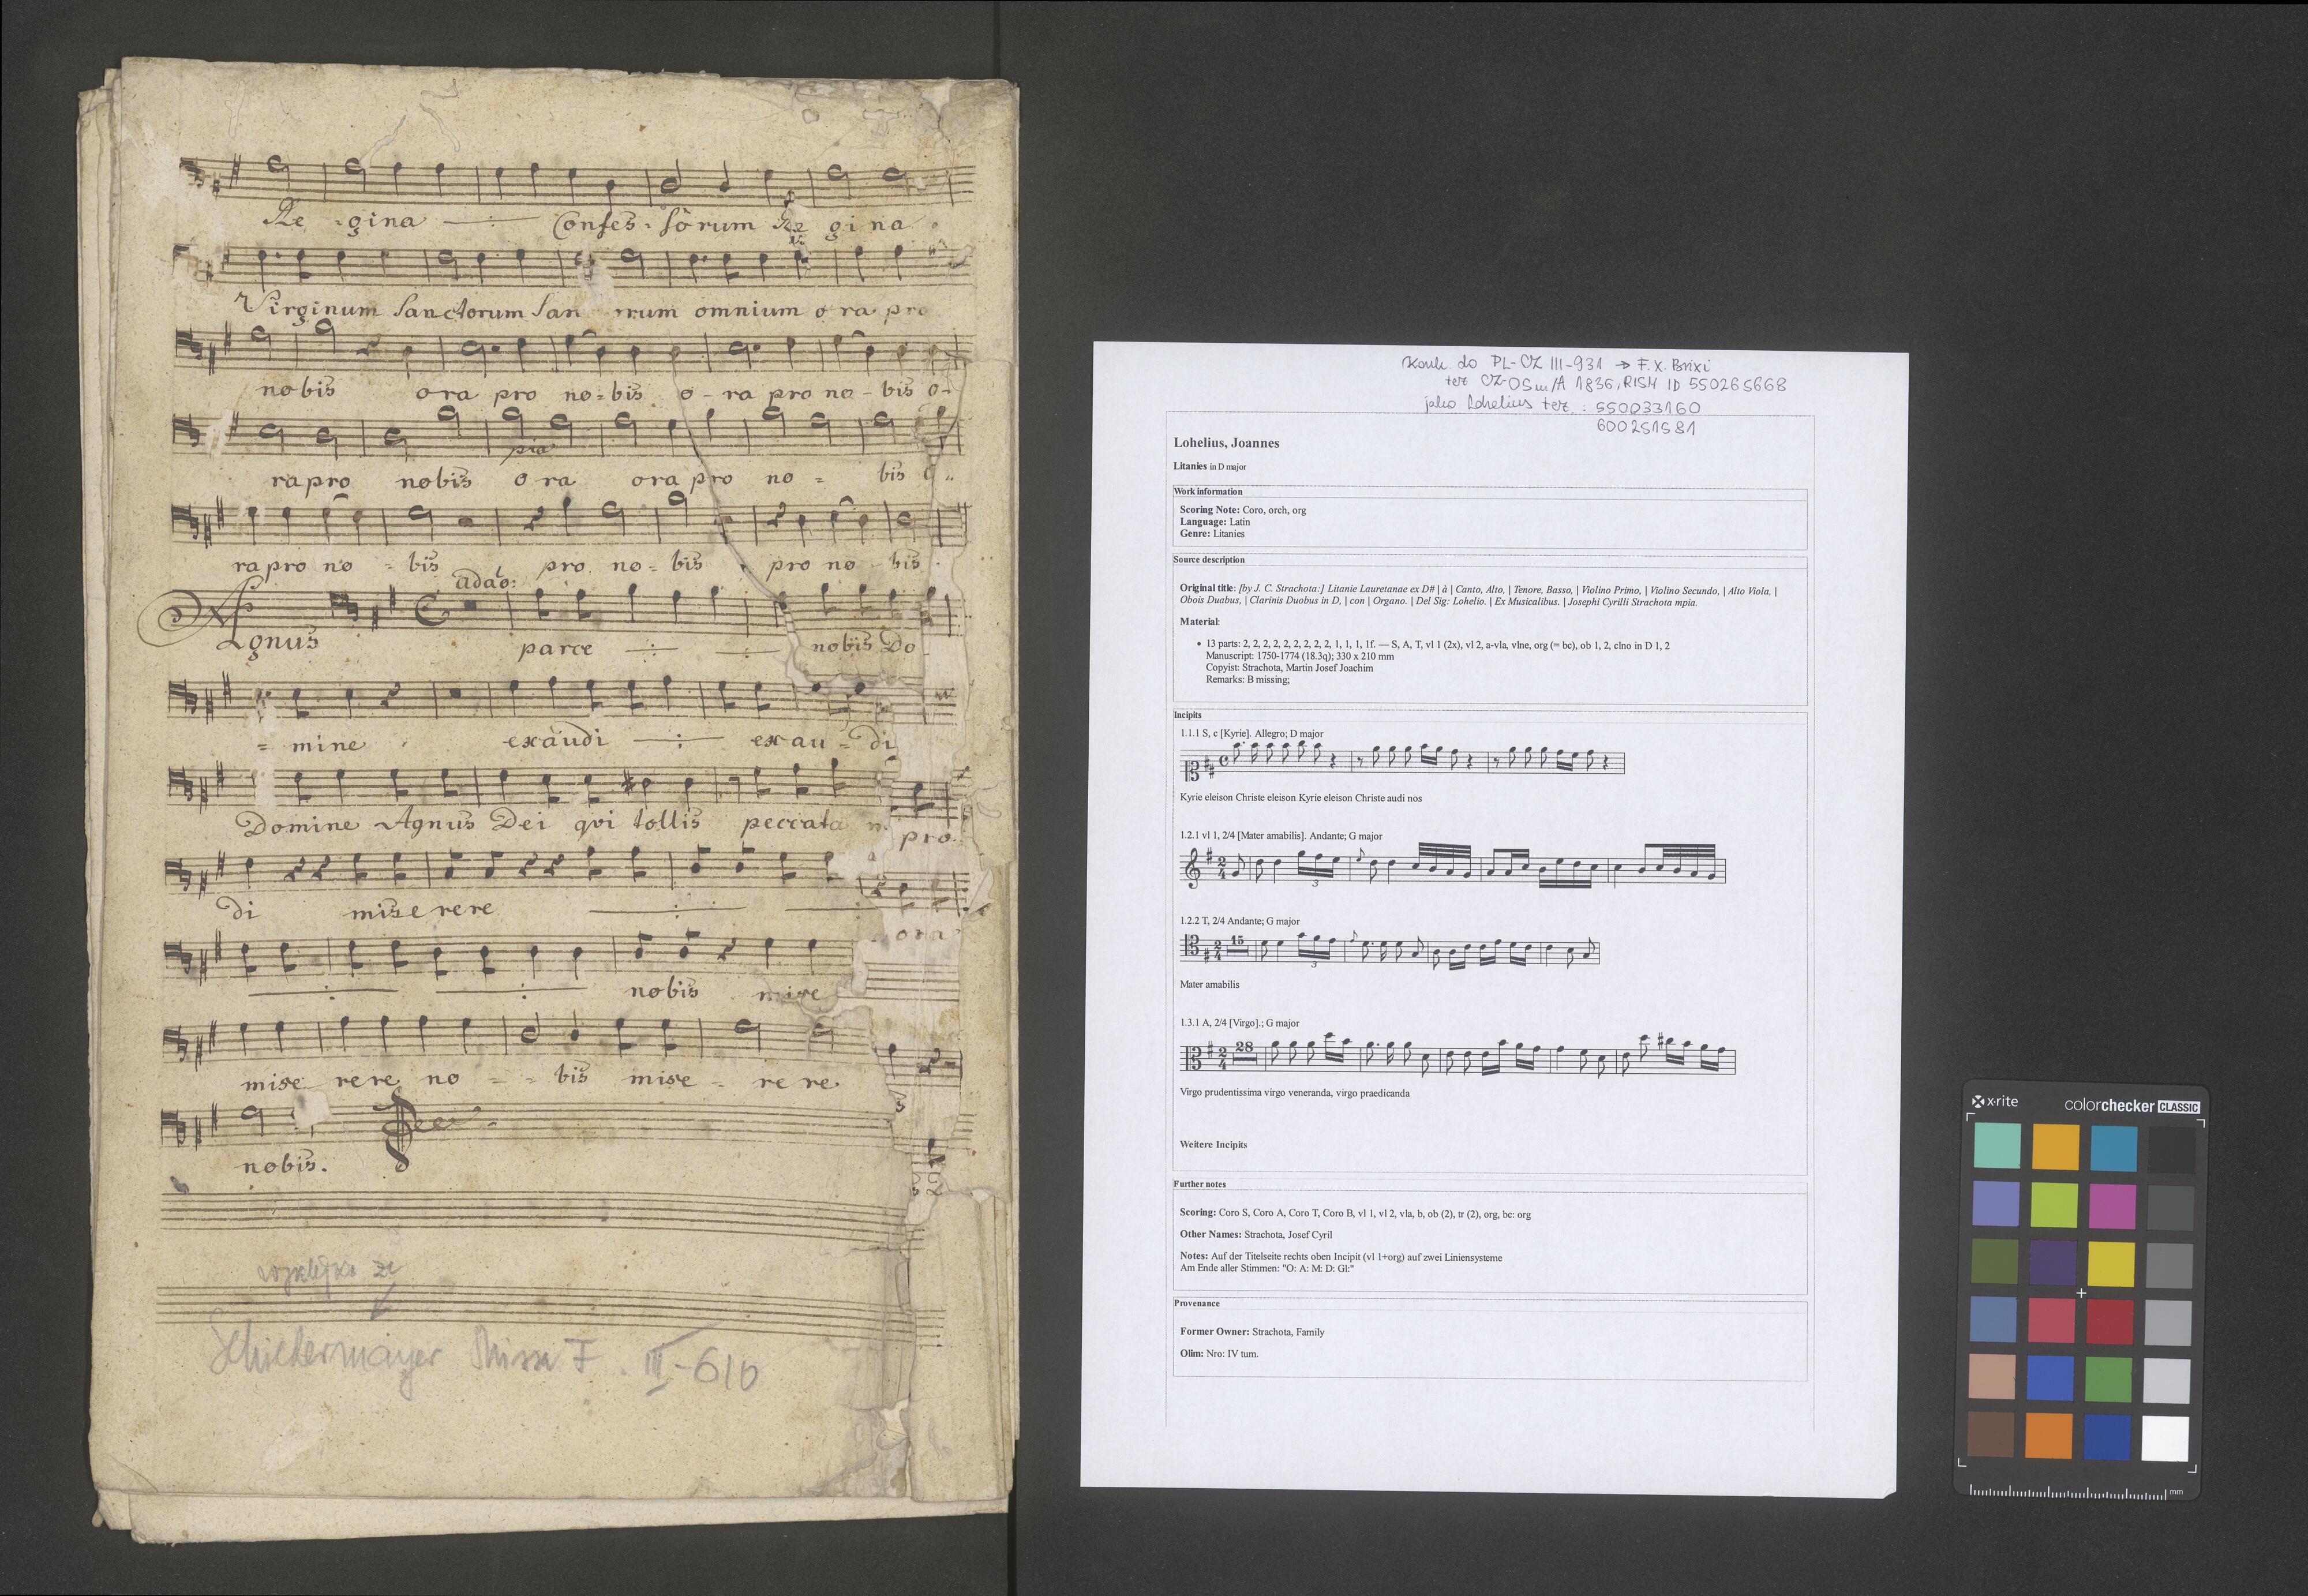 Re - gina Confes - sorum Re gina
Virginum Sanctorum San rum omnium o ra pro
nobis ora pro no - bis o - ra pro no - bis o -
pia
ra pro nobis o ra ora pro no - bis o
ra pro no - bis pro no - bis pro no - bis
adao:
Agnus parce nobis Do
- mine exaudi exau - di
Domine Agnus Dei qui tollis peccata
pro
di miserere
ora
nobis mise
mise rere no - - bis mise - re re
nobis.
ze
Schiedermayer Missa F. III-616
Konk do PL-CZ III-931 → F. X. Brixi
też CZ-OSm/A 1836, RISM ID 550265668
jako Lohelius też : 550033160
600251581
Lohelius, Joannes
Litanies in D major
Work information
Scoring Note: Coro, orch, org
Language: Latin
Genre: Litanies
Source description
Original title: [by J. C. Strachota:] Litanie Lauretanae ex D# | à | Canto, Alto, | Tenore, Basso, | Violino Primo, | Violino Secundo, | Alto Viola, |
Obois Duabus, | Clarinis Duobus in D, | con | Organo. | Del Sig: Lohelio. | Ex Musicalibus. | Josephi Cyrilli Strachota mpia.
Material:
• 13 parts: 2, 2, 2, 2, 2, 2, 2, 2, 2, 1, 1, 1, 1f. — S, A, T, vl 1 (2x), vl 2, a-vla, vlne, org (= bc), ob 1, 2, clno in D 1, 2
Manuscript: 1750-1774 (18.3q); 330 x 210 mm
Copyist: Strachota, Martin Josef Joachim
Remarks: B missing;
Incipits
1.1.1 S, c [Kyrie]. Allegro; D major
Kyrie eleison Christe eleison Kyrie eleison Christe audi nos
1.2.1 vl 1, 2/4 [Mater amabilis]. Andante; G major
3
1.2.2 T, 2/4 Andante; G major
15
3
Mater amabilis
1.3.1 A, 2/4 [Virgo].; G major
28
Virgo prudentissima virgo veneranda, virgo praedicanda
Weitere Incipits
Further notes
Scoring: Coro S, Coro A, Coro T, Coro B, vl 1, vl 2, vla, b, ob (2), tr (2), org, bc: org
Other Names: Strachota, Josef Cyril
Notes: Auf der Titelseite rechts oben Incipit (vl 1+org) auf zwei Liniensysteme
Am Ende aller Stimmen: "O: A: M: D: Gl:"
Provenance
Former Owner: Strachota, Family
Olim: Nro: IV tum.
x·rite colorchecker CLASSIC
mm